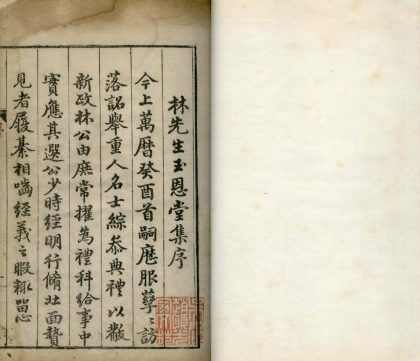 林先生玉恩堂集序
今上萬曆癸酉首嗣麿服孳〻訪
落詔舉重人名士綜叅典禮以黻
新政林公由庶常擢為禮科給事中
實應其選公少時經明行脩北面贄
見者履綦相嚙經義之暇輒留心